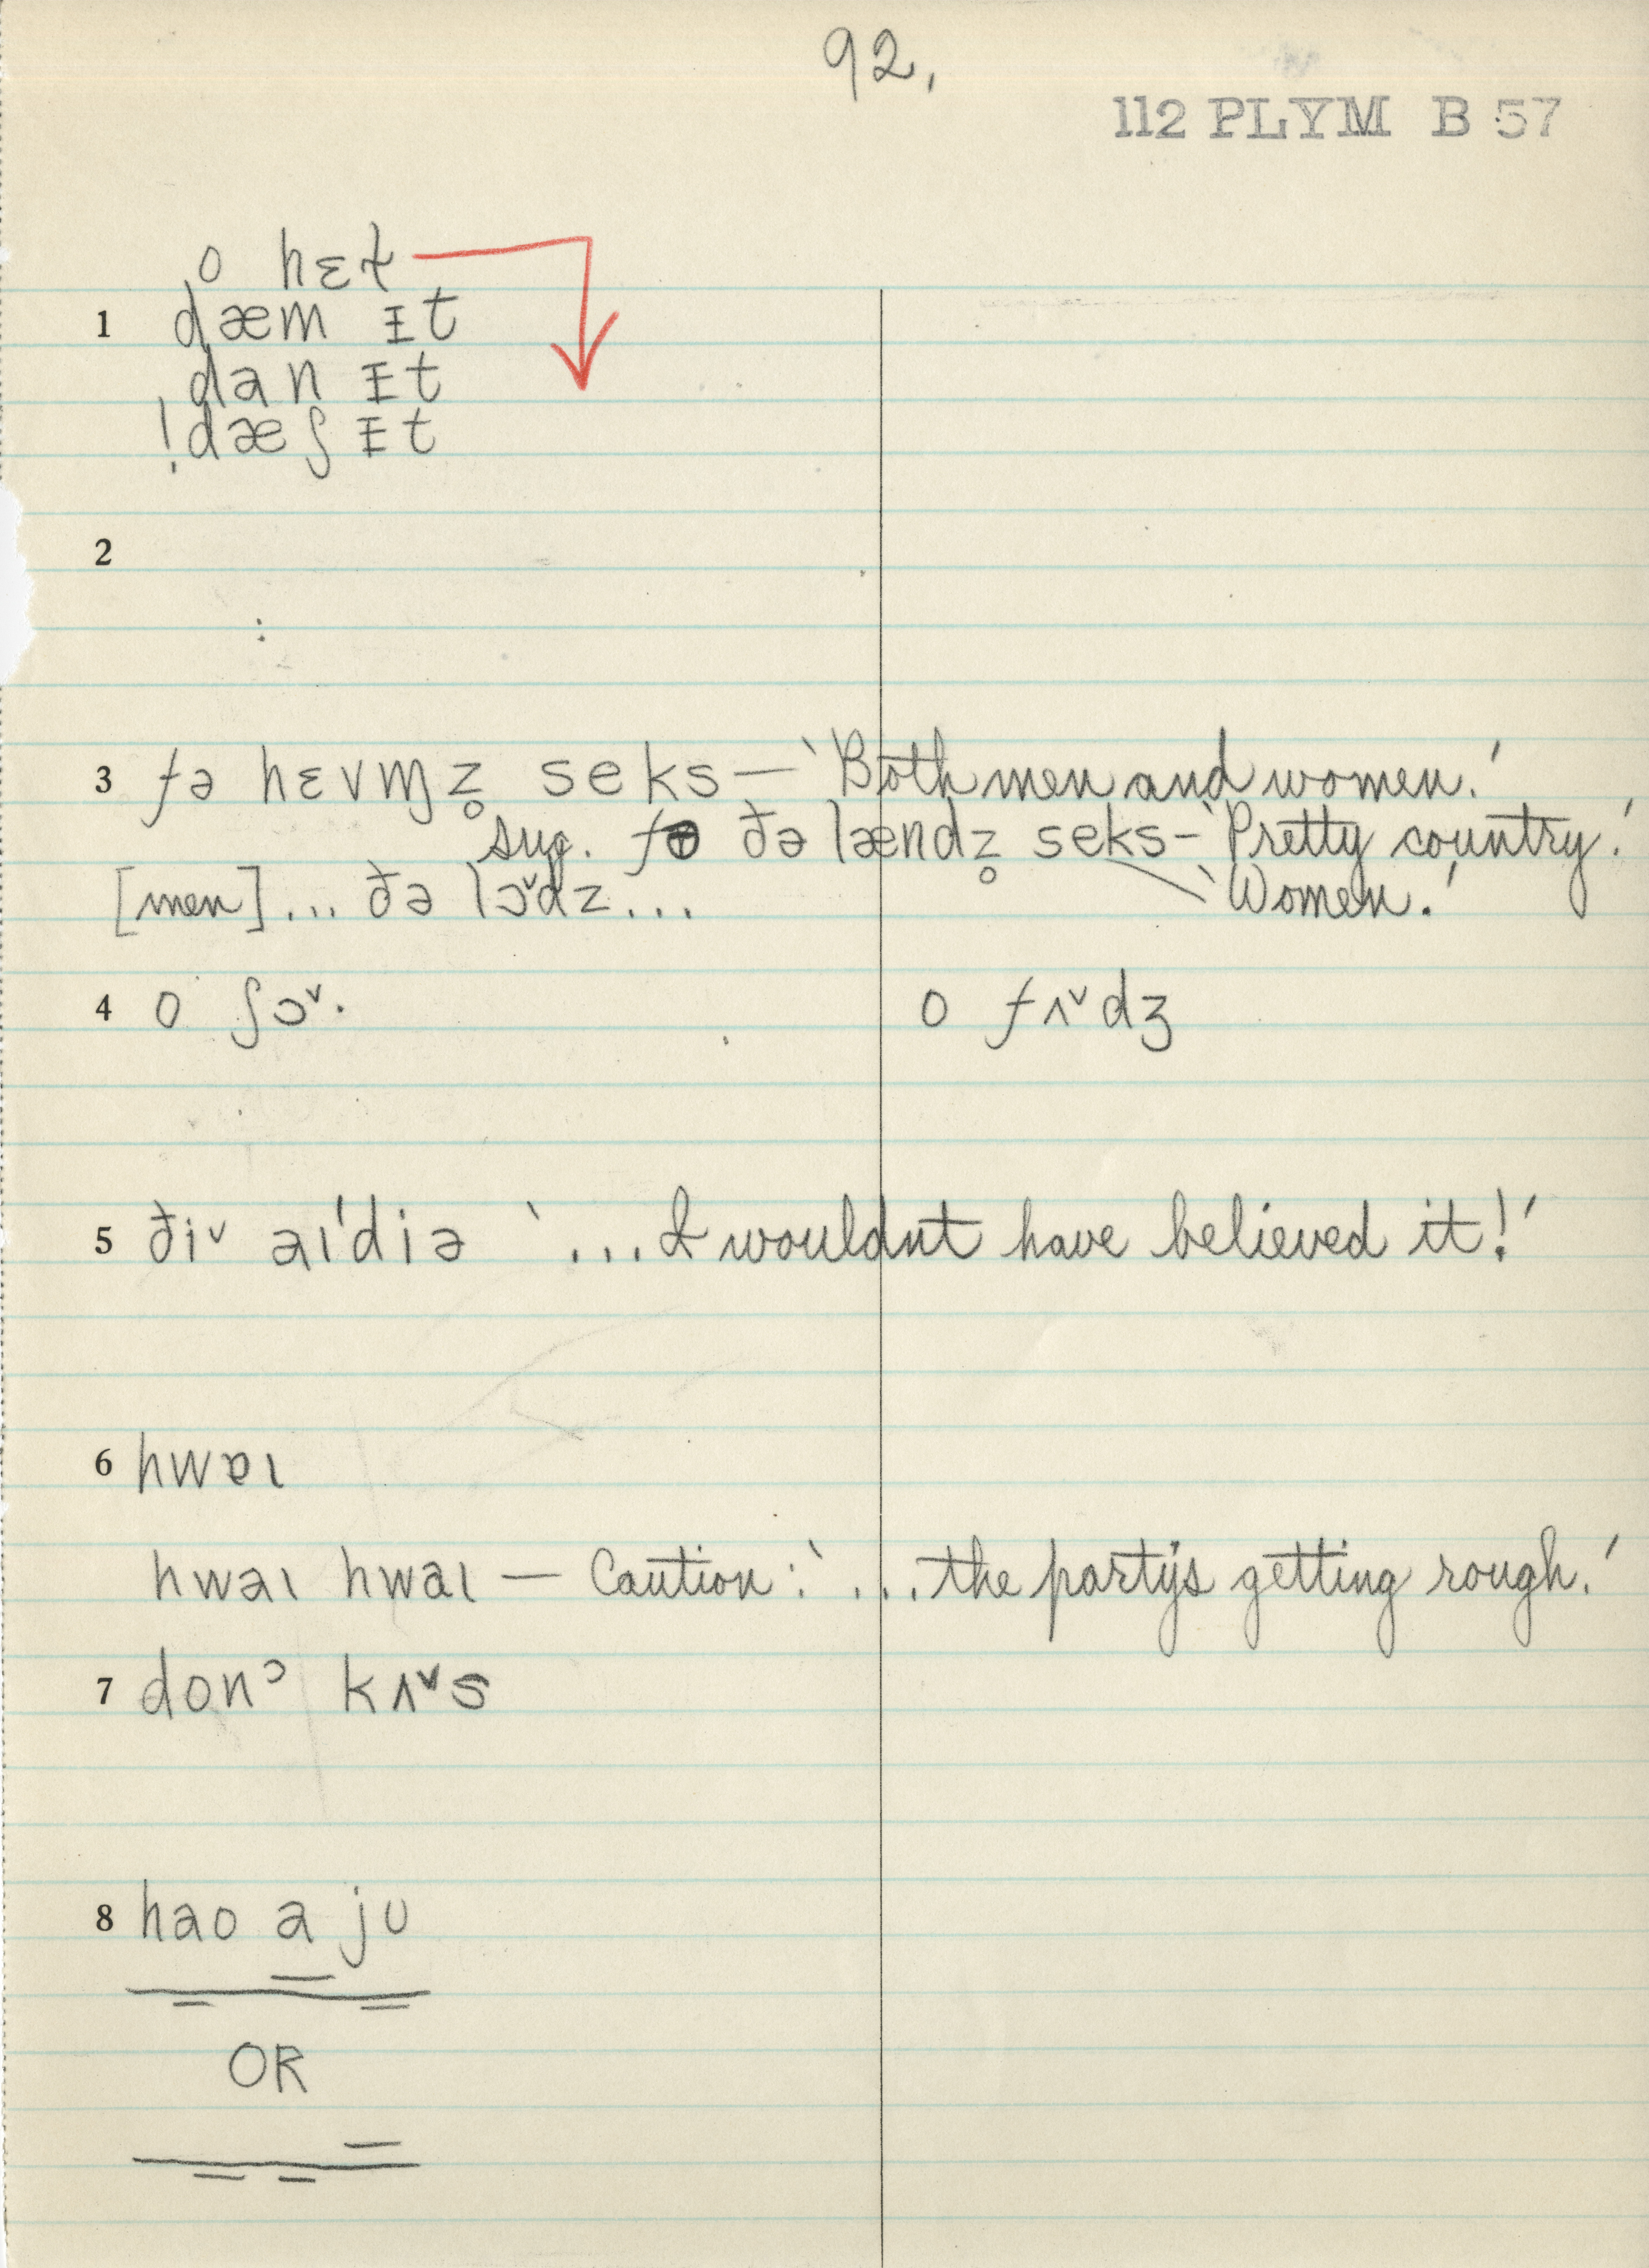 92.
112 PLYM B 57
o hɛɫ
1 dæm ᵻt
dan ᵻt
! dæʃ ᵻt
2
:
3 fə hɛvɱz̥ seks — ‵Both men and women.′
sug. fə ðə lændz̥ seks - ‵Pretty country.′
[men] ... ðə lɔˇdz ... ‵Women.′
4 o ʃɔˇ· o fʌˇdʒ
5 ðiˇ aɪˈdiə ‵...I wouldnt have believed it!′
6 hwɐɪ
hwaɪ hwaɪ — Caution: ‵...the party's getting rough.′
7 donᵓ kʌˇs
8 hao a ju
OR